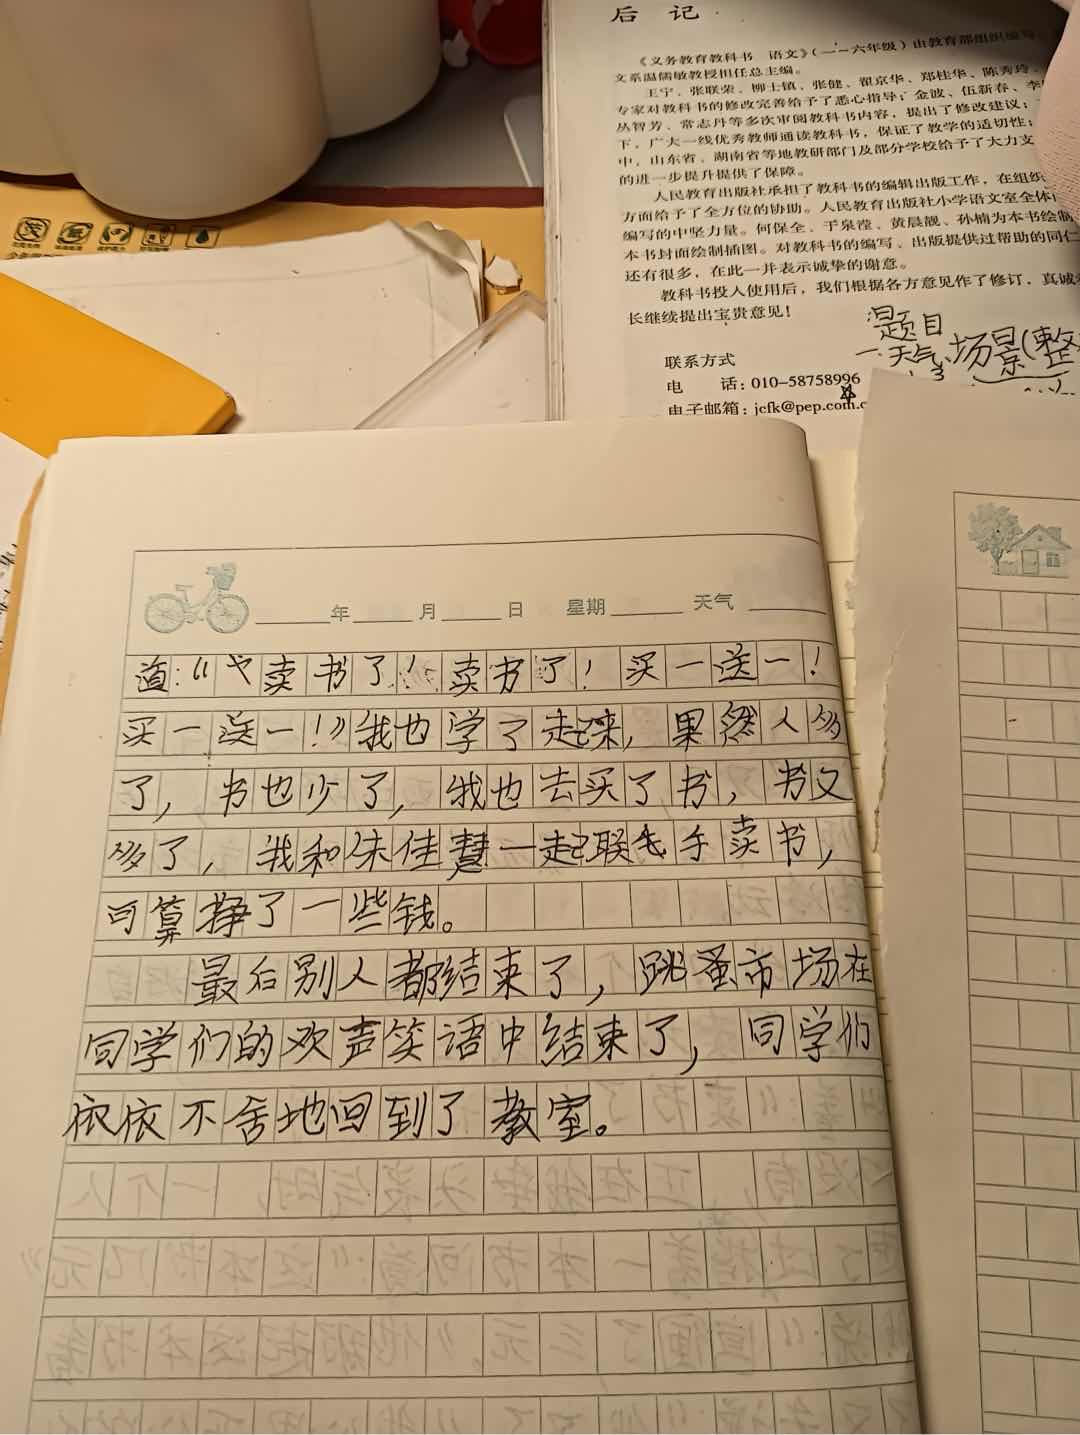 后 记
《义务教育教科书 语文》(一～六年级)由教育部组织编写
文系温儒敏教授担任总主编。
王宁、张联荣、柳士镇、张健、翟京华、郑桂华、陈秀玲、
专家对教科书的修改完善给予了悉心指导；金波、伍新春、李
丛智芳、常志丹等多次审阅教科书内容，提出了修改建议；
下，广大一线优秀教师通读教科书，保证了教学的适切性；
中，山东省、湖南省等地教研部门及部分学校给予了大力支
的进一步提升提供了保障。
人民教育出版社承担了教科书的编辑出版工作，在组织
方面给予了全方位的协助。人民教育出版社小学语文室全体
编写的中坚力量。何保全、于泉滢、黄晨靓、孙楠为本书绘制
本书封面绘制插图。对教科书的编写、出版提供过帮助的同仁
还有很多，在此一并表示诚挚的谢意。
教科书投入使用后，我们根据各方意见作了修订，真诚
长继续提出宝贵意见！
题目
一.天气、场景(整
联系方式
电 话：010-58758996
电子邮箱：jcfk@pep.com.c
年 月 日 星期 天气
道：“卖书了！卖书了！买一送一！
买一送一！”我也学了起来，果然人多
了，书也少了，我也去买了书，书又
多了，我和朱佳慧一起联手卖书，
可算挣了一些钱。
最后别人都结束了，跳蚤市场在
同学们的欢声笑语中结束了，同学们
依依不舍地回到了教室。